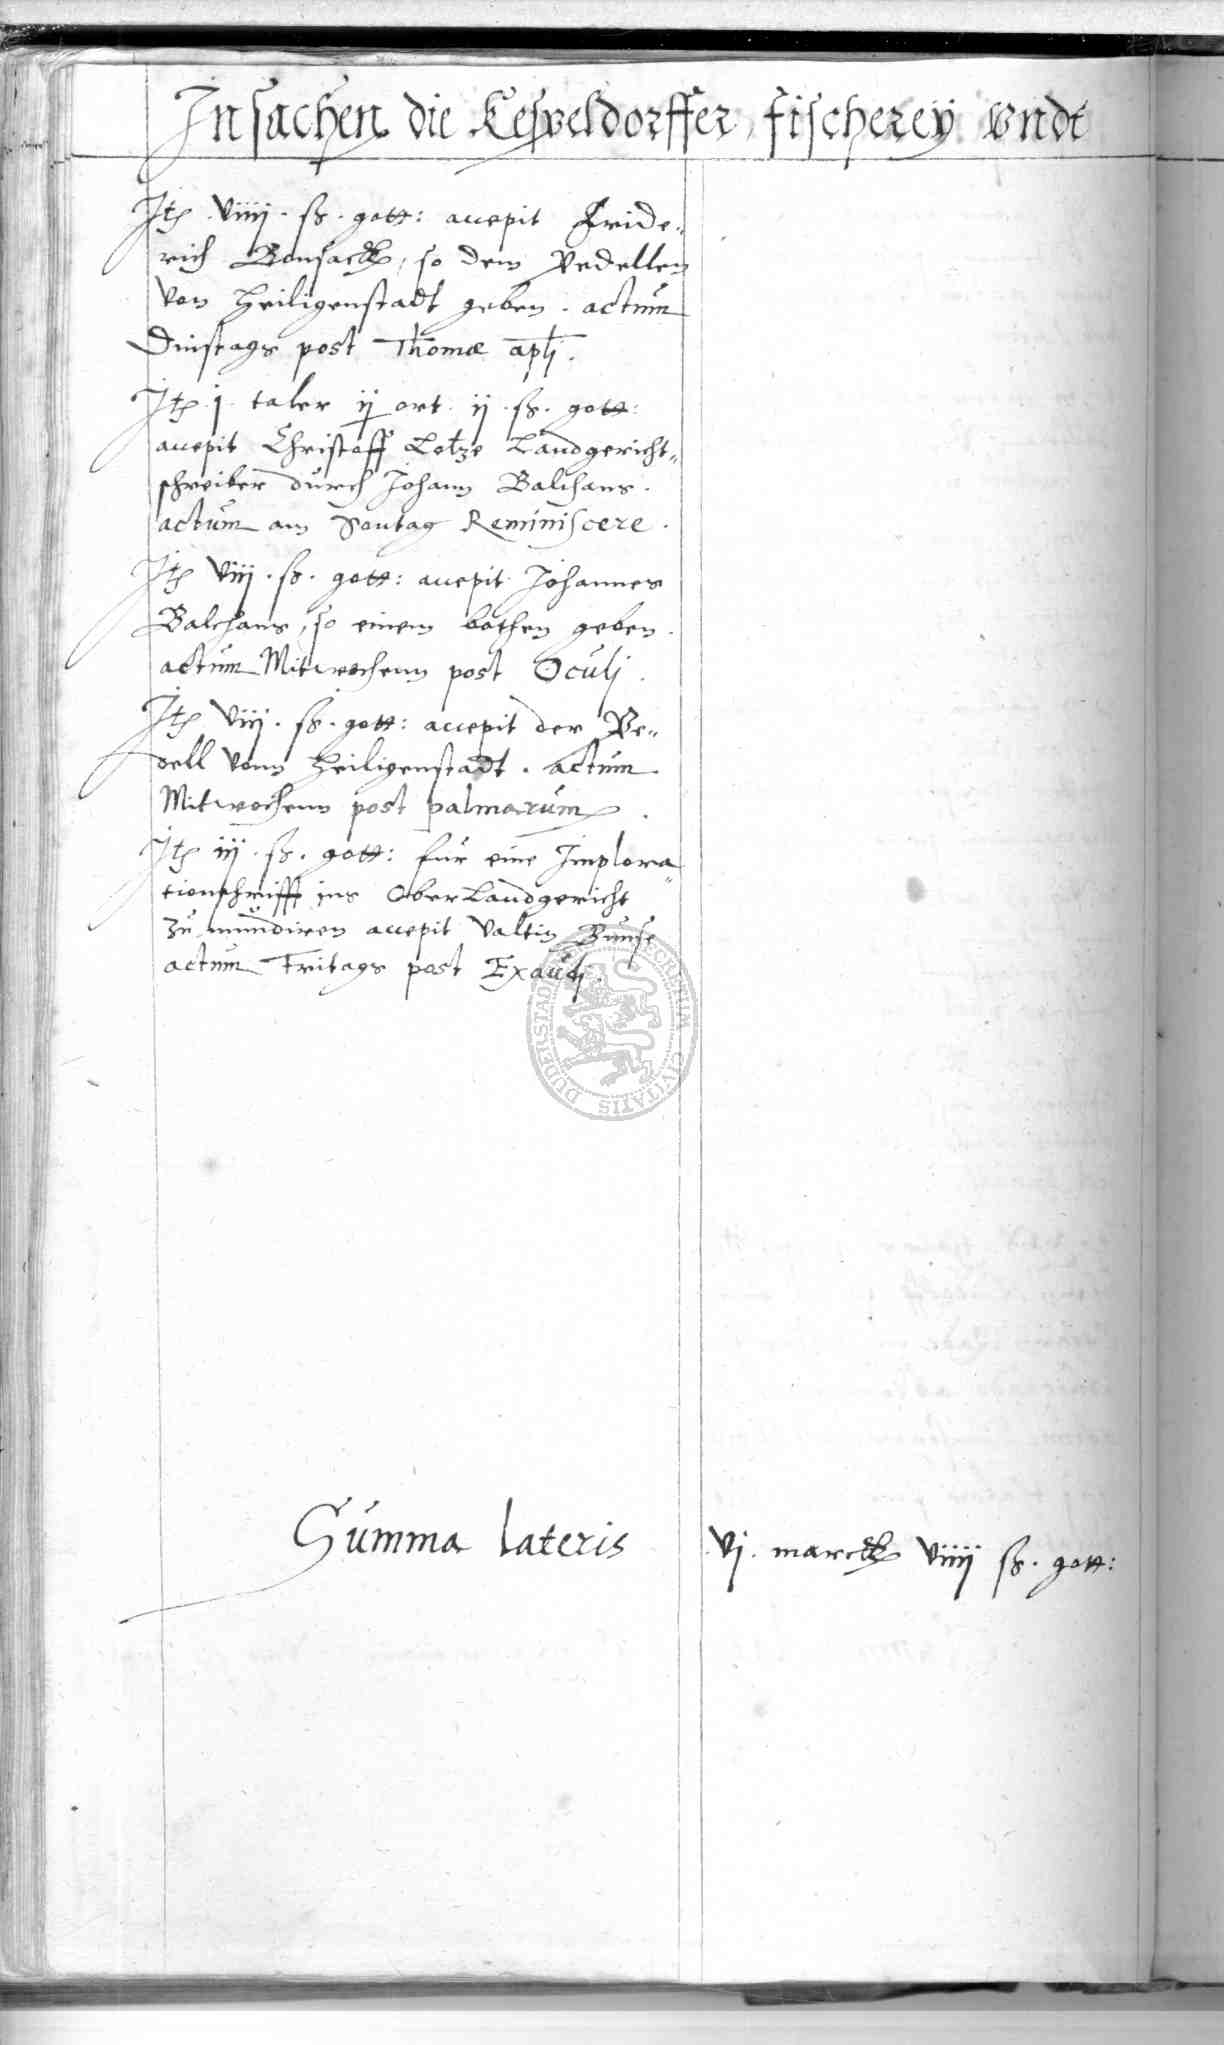 In sachen die Kespeldorffer fischerey Vndt
Itē viiij. ß. gott: accepit Fride„
rich Bonsack, so dem Pedellen
von Heiligenstadt geben. actum
Dinstags post Thomæ apli.
Itē j. taler ij ort. ij. ß. gott:
accepit Christoff Lotze Landgericht„
schreiber durch Johann Balchans.
actum am Sontag Reminiscere.
Itē viij. ß. gott: accepit Johannes
Balchans, so einem bothen geben.
actum Mitwochenn post Oculj.
Itē viij. ß. gott: accepit der Pe„
dell vonn Heiligenstadt. actum
Mitwochenn post palmarum.
Itē iij. ß. gott: für eine Implora„
tionschrifft ins OberLandgericht
zu mundiren accepit Valtin Bunse
actum Fritags post Exaudj.
DUDERSTADENSIS SECRETUM CIVITATIS
Summa lateris vj. marck viiij ß. gott: